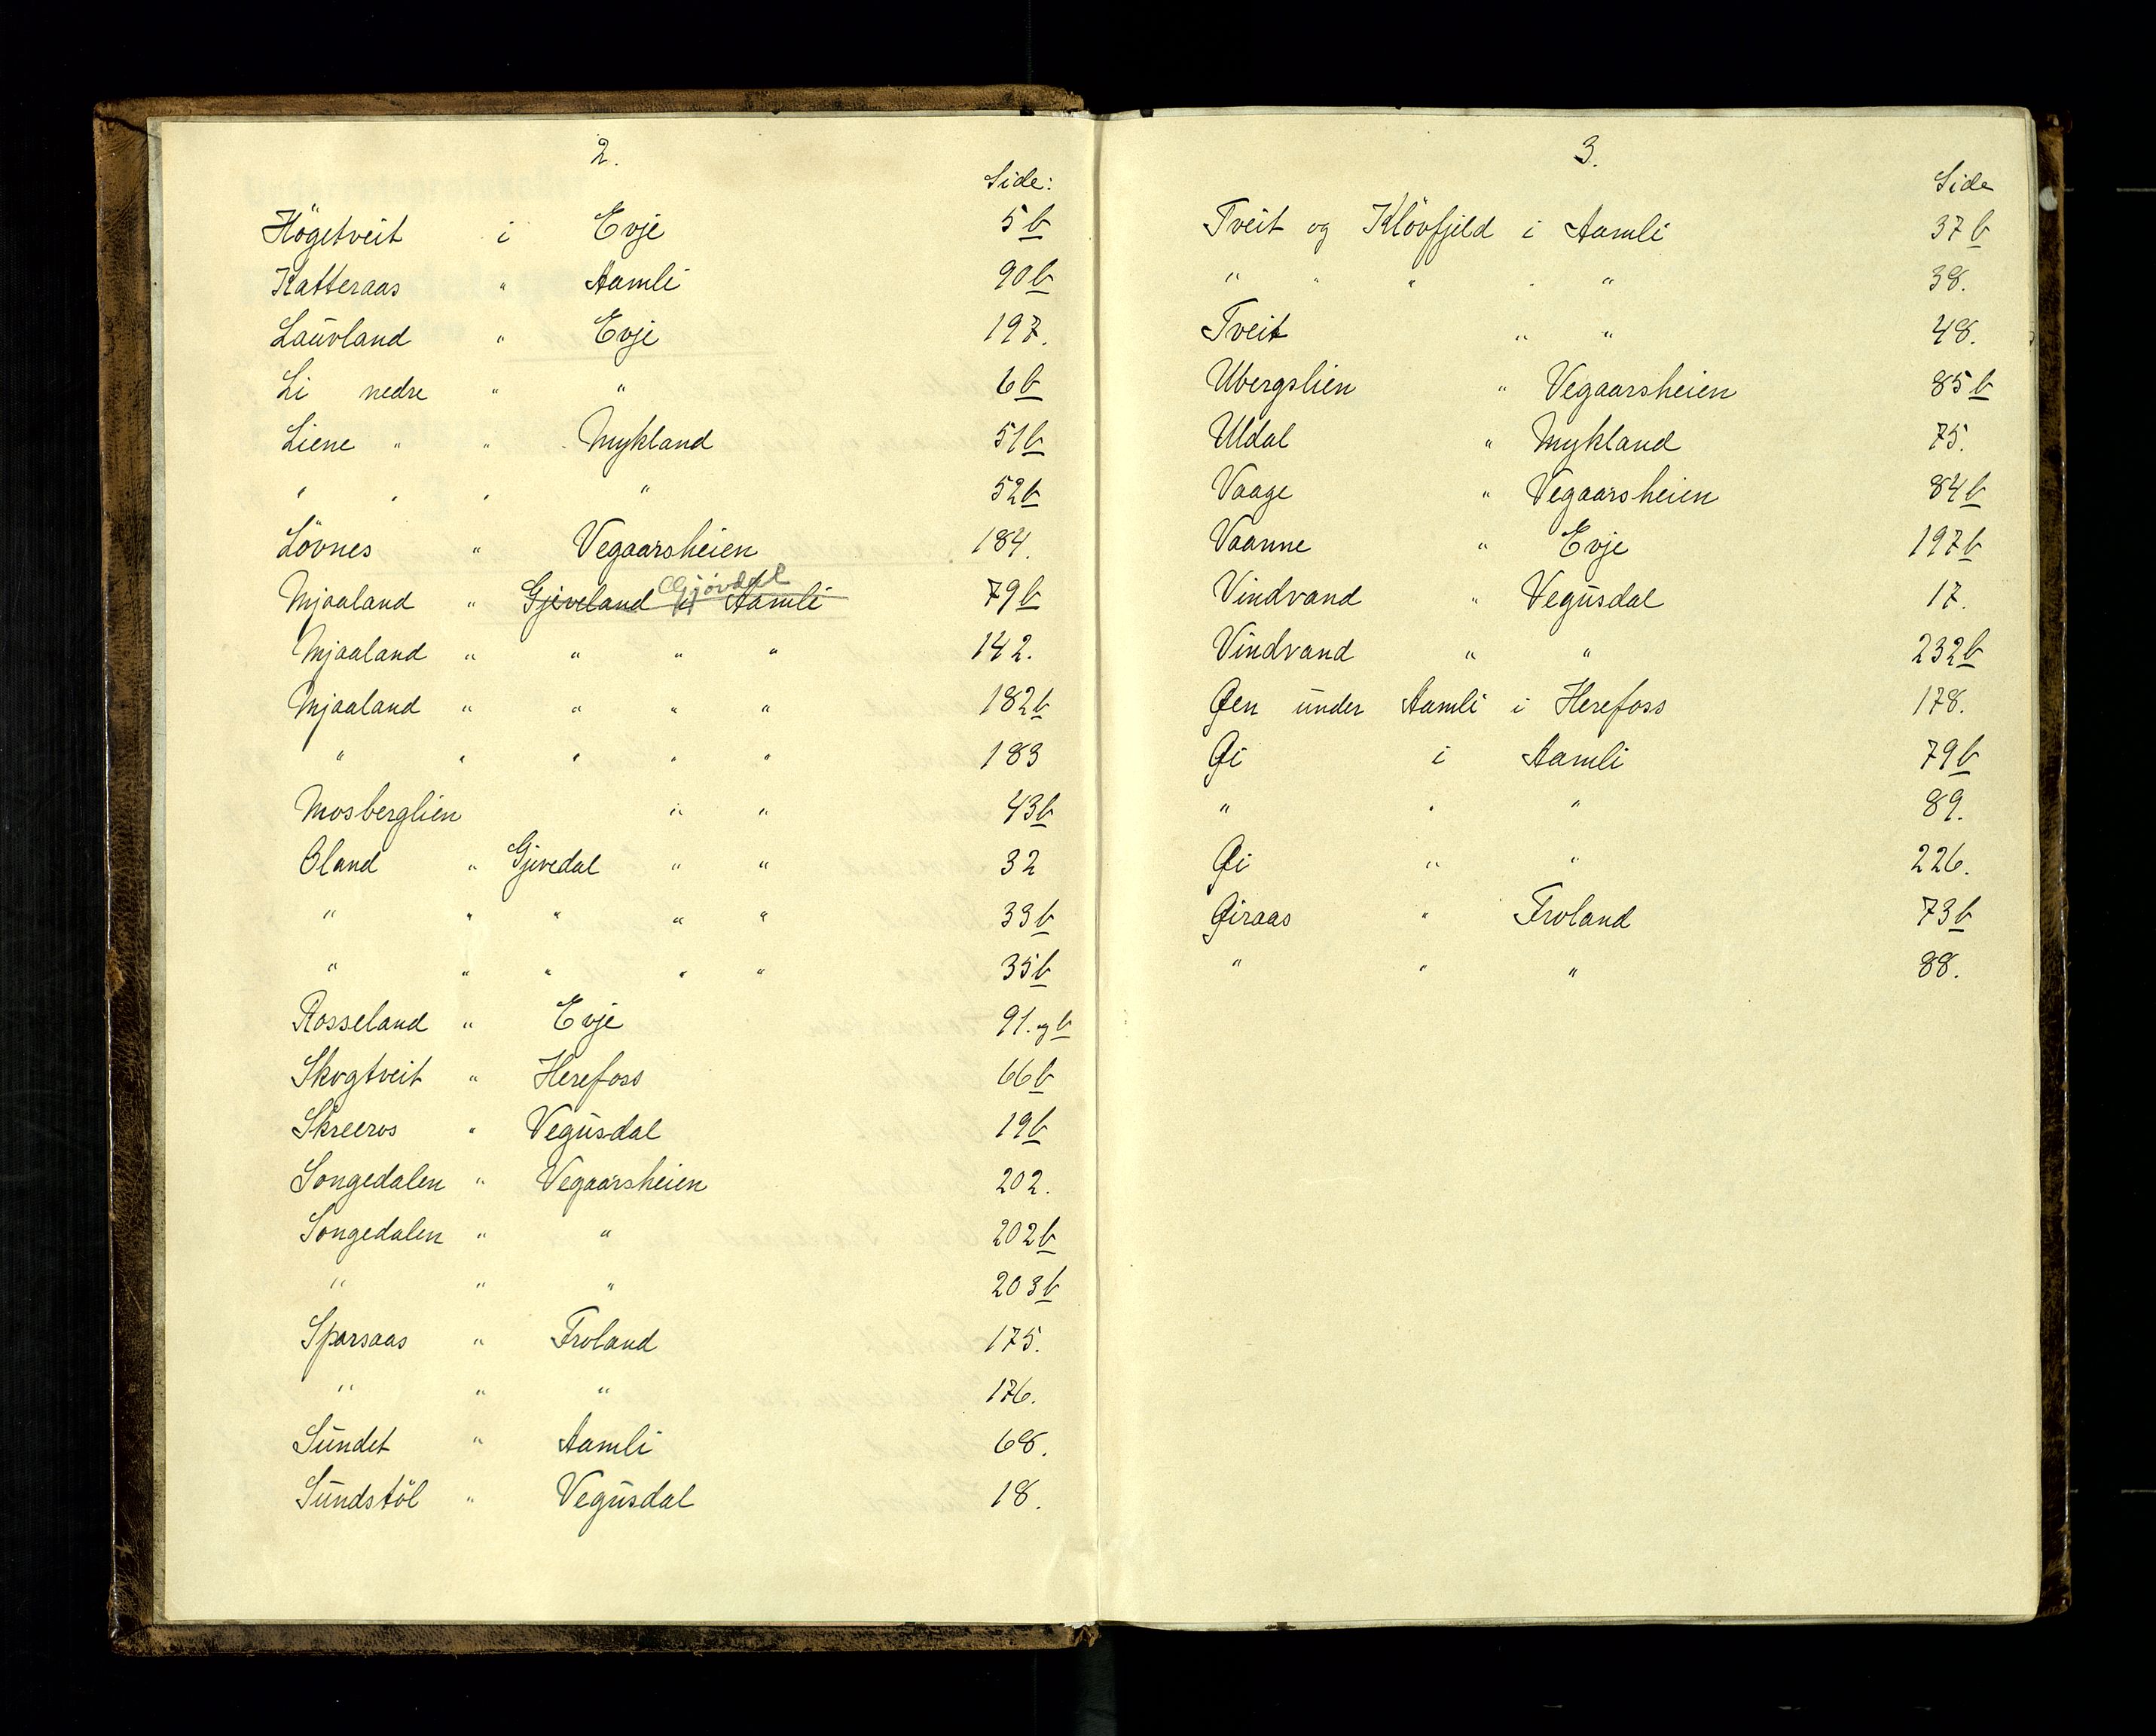 2.
Side:
Högetveit i Evje 5 b
Katteraas " Aamli 90 b
Laŭvland " Evje 197.
Li nedre " " 6 b
Liene " " Mykland 51 b
" " " " 52 b
Lövnes " Vegaarsheien 184.
Gjövdal
Mjaaland " Gjeveland i Aamli 79 b
Mjaaland " " " " 142.
Mjaaland " " " " 182 b
" " " " " 183
Mosberglien " " 43 b
Oland " Gjevedal " " 32
" " " " " 33 b
" " " " " 35 b
Rosseland " Evje 91. og b
Skogtveit " Herefoss 66 b
Skreeros " Vegŭsdal 19 b
Songedalen " Vegaarsheien 202.
Songedalen " " 202 b
" " " 203 b
Sparsaas " Froland 175.
" " " 176.
Sŭndet " Aamli 68.
Sŭndstöl " Vegŭsdal 18.
3.
Side
Tveit og Klövfjeld i Aamli 37 b
" " " " " 38.
Tveit " " 48.
Ubergslien " Vegaarsheien 85 b
Uldal " Mykland 75.
Vaage " Vegaarsheien 84 b
Vaanne " Evje 197 b
Vindvand " Vegŭsdal 17.
Vindvand " " 232 b
Øen ŭnder Aamli i Herefoss 178.
Øi i Aamli 79 b
" " " 89.
Øi " " 226.
Øiraas " Froland 73 b
" " " 88.